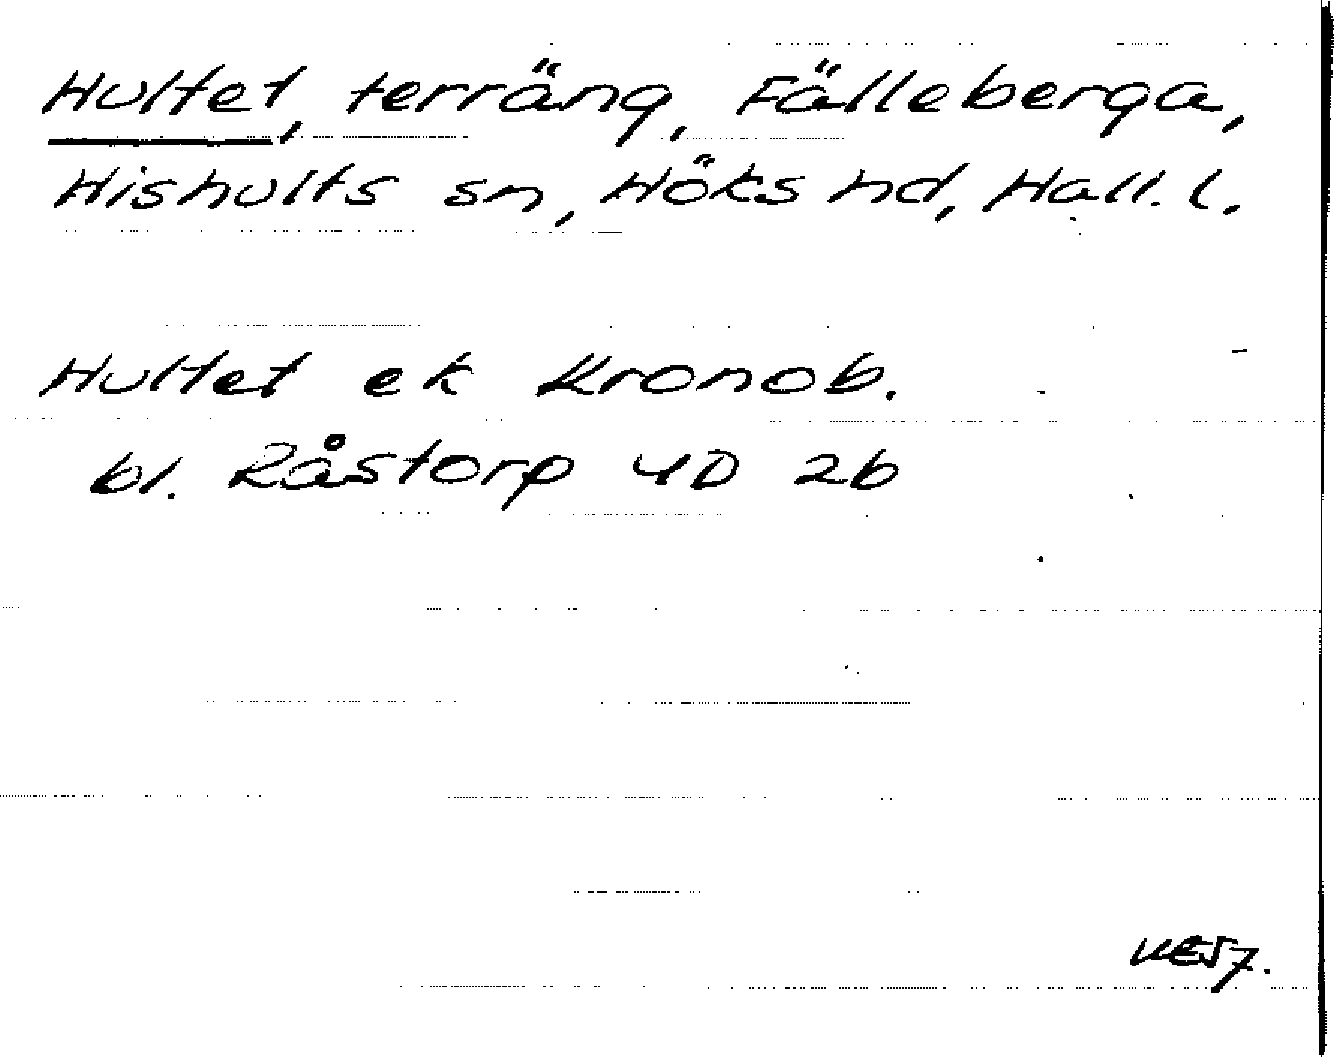 Hultet, terräng, Fälleberga,
Hishults sn, Höks hd, Hall. l.
Hultet ek Kronob.
bl. Råstorp 4D 2b